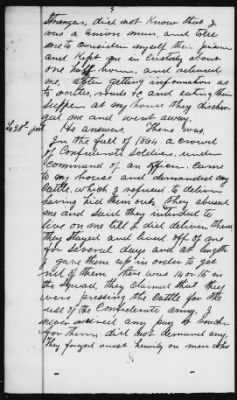 Stranger, did not Know that I
was a Union man, and told
me to consider myself their prisoner
and Kept me in Custody about
one half hour, and released
me, after getting information as
to routes, roads &c and eating their
supper at my house they dischar
ged me and went away.
To 38th Int He answers There was.
In the fall of 1864 a crowd
of Confederate Soldiers, under
command of an officer came
to my house and demanded my
Cattle, which I refused to deliver
having hid them out, They abused
me and said they intended to
live on me till I did deliver them
they stayed and lived off of me
for several days and at length
I gave them up in order to get
rid of them, there was 14 or 15 in
the Squad, they claimed that they
were pressing the Cattle for the
use of the Confederate army, I
never received any pay or voucher
for them, did not demand any,
They foraged most heavily on men who